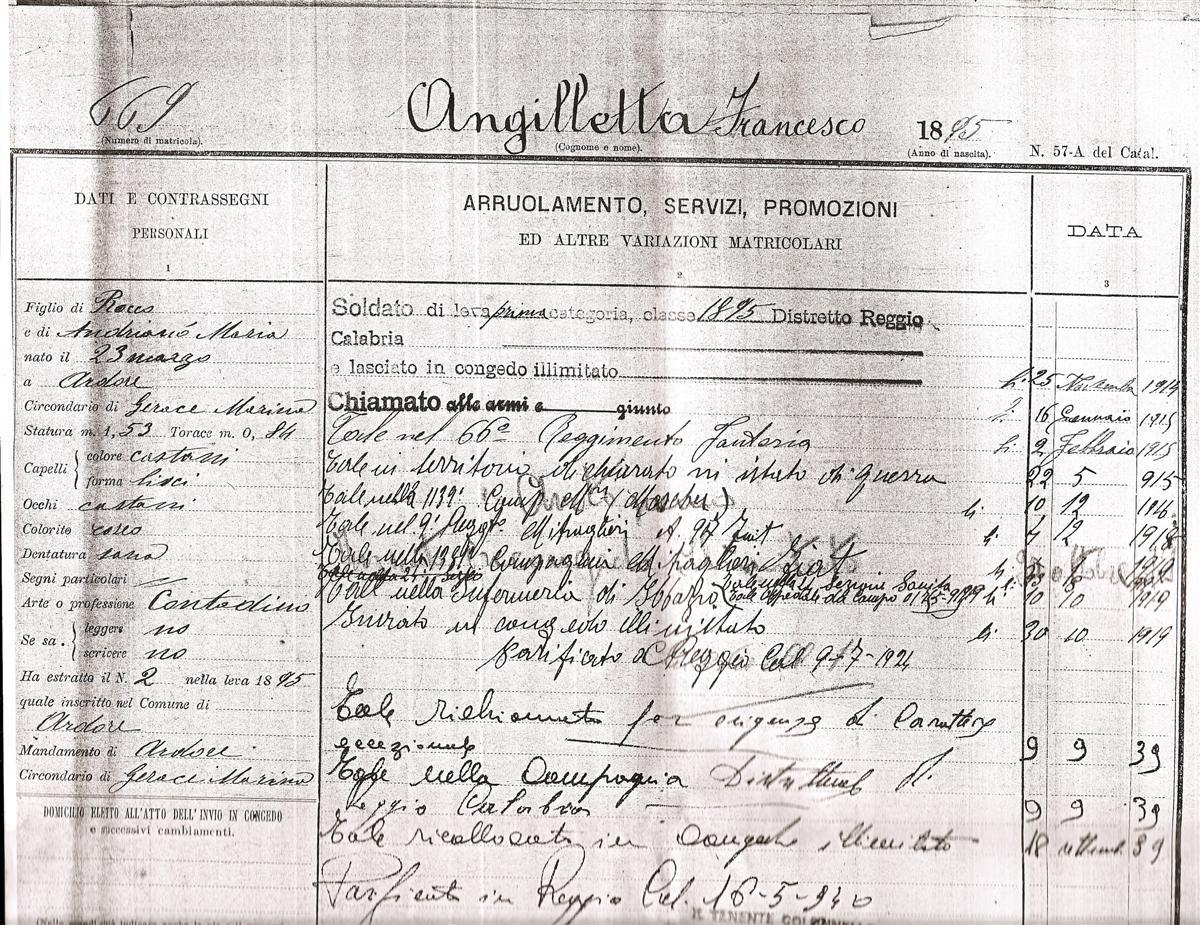 669
(Numero di matricola).
Angilletta Francesco
(Cognome e nome).
1895
(Anno di nascita).
N. 57-A del Catal.
DATI E CONTRASSEGNI
PERSONALI
1
Figlio di Rocco
e di Andrianò Maria
nato il 23 marzo
a Ardore
Circondario di Gerace Marina
Statura m. 1,53 Torace m. 0,84
Capelli colore castani
forma lisci
Occhi castani
Colorito roseo
Dentatura sana
Segni particolari
Arte o professione Contadino
Se sa leggere no
scrivere no
Ha estratto il N. 2 nella leva 1895
quale inscritto nel Comune di
Ardore
Mandamento di Ardore
Circondario di Gerace Marina
DOMICILIO ELETTO ALL'ATTO DELL'INVIO IN CONGEDO
e successivi cambiamenti.
ARRUOLAMENTO, SERVIZI, PROMOZIONI
ED ALTRE VARIAZIONI MATRICOLARI
2
DATA
3
Soldato di leva prima categoria, classe 1895 Distretto Reggio
Calabria
e lasciato in congedo illimitato li 25 1914
Chiamato alle armi e giunto li 16 Gennaio 1915
Tale nel 66º Reggimento Fanteria li 2 Febbraio 1915
Tale in territorio dichiarato in istato di guerra 22 5 915
Tale nella 1139ª Comp. li 10 12 1916
Tale nel 9º Mitraglieri li 7 12 1918
Tale nella Compagnia Mitraglieri Fiat li 1919
Tale nella Infermeria di li 10 10 1919
Inviato in congedo illimitato li 30 10 1919
Parificato a Reggio Cal 9-7-1921
Tale richiamato per esigenze di carattere
eccezionale 9 9 39
Tale nella Compagnia Distrettuale di
Reggio Calabria 9 9 39
Tale ricollocato in congedo illimitato 18 settemb 39
Parificato in Reggio Cal. 16-5-940
IL TENENTE COLONNELLO